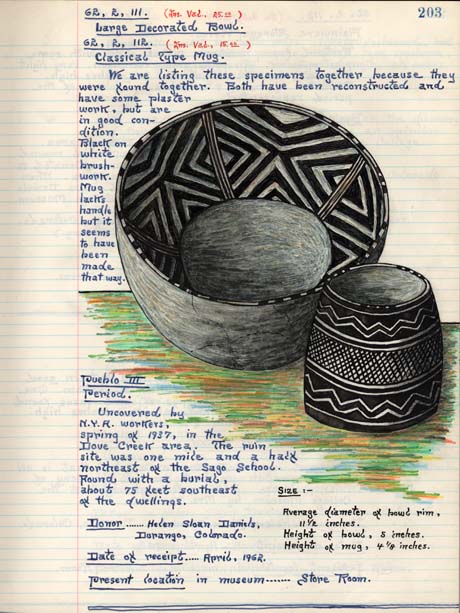 203
62, 2, 111. (Ins. Val., 25.00)
Large Decorated Bowl.
62, 2, 112. (Ins. Val., 15.00)
Classical Type Mug.
We are listing these specimens together because they
were found together. Both have been reconstructed and
have some plaster
work, but are
in good con-
dition.
Black on
white
brush-
work.
Mug
lacks
handle
but it
seems
to have
been
made
that way.
Pueblo III
Period.
Uncovered by
N.Y.A. workers,
spring of 1937, in the
Dove Creek area. The ruin
site was one mile and a half
northeast of the Sago School.
Found with a burial,
about 75 feet southeast
of the dwellings.
Donor ....... Helen Sloan Daniels,
Durango, Colorado.
Date of receipt..... April, 1962.
Present location in museum....... Store Room.
Size :-
Average diameter of bowl rim,
11 1/2 inches.
Height of bowl, 5 inches.
Height of mug, 4 1/8 inches.